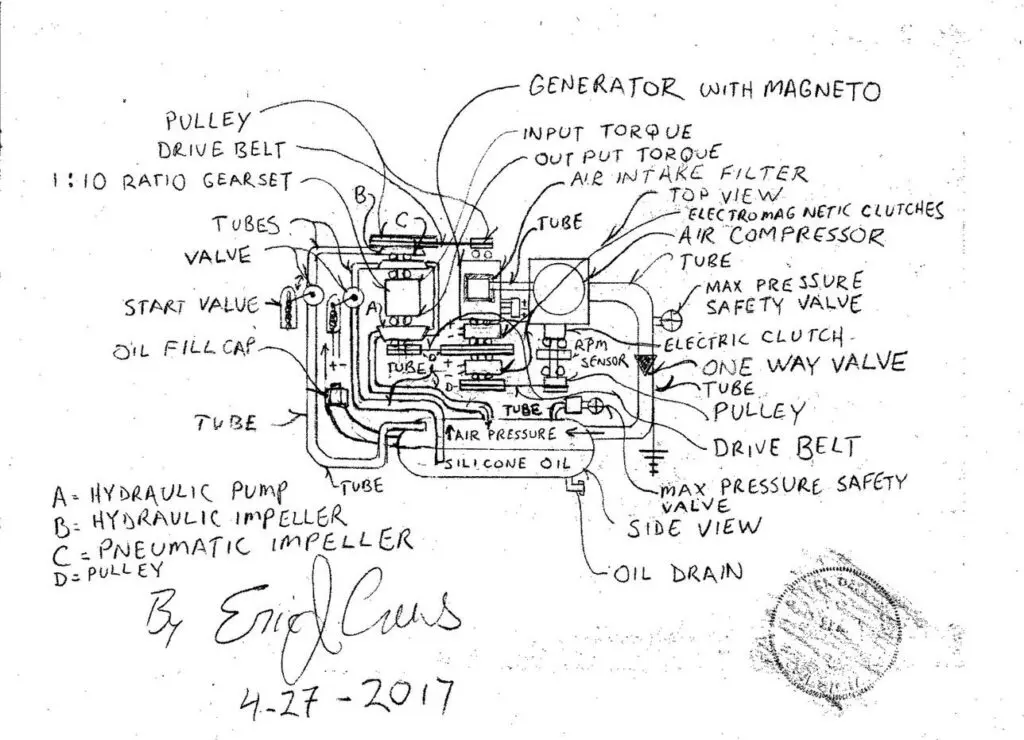 GENERATOR WITH MAGNETO
PULLEY
DRIVE BELT
1:10 RATIO GEARSET
INPUT TORQUE
OUTPUT TORQUE
AIR INTAKE FILTER
TOP VIEW
ELECTROMAGNETIC CLUTCHES
AIR COMPRESSOR
TUBE
B
C
TUBE
TUBES
VALVE
START VALVE
OIL FILL CAP
MAX PRESSURE
SAFETY VALVE
A
ELECTRIC CLUTCH
RPM
SENSOR
ONE WAY VALVE
TUBE
TUBE
+-
D
TUBE
PULLEY
TUBE
AIR PRESSURE
DRIVE BELT
SILICONE OIL
TUBE
MAX PRESSURE SAFETY
VALVE
SIDE VIEW
OIL DRAIN
A= HYDRAULIC PUMP
B= HYDRAULIC IMPELLER
C= PNEUMATIC IMPELLER
D= PULLEY
By
4-27-2017